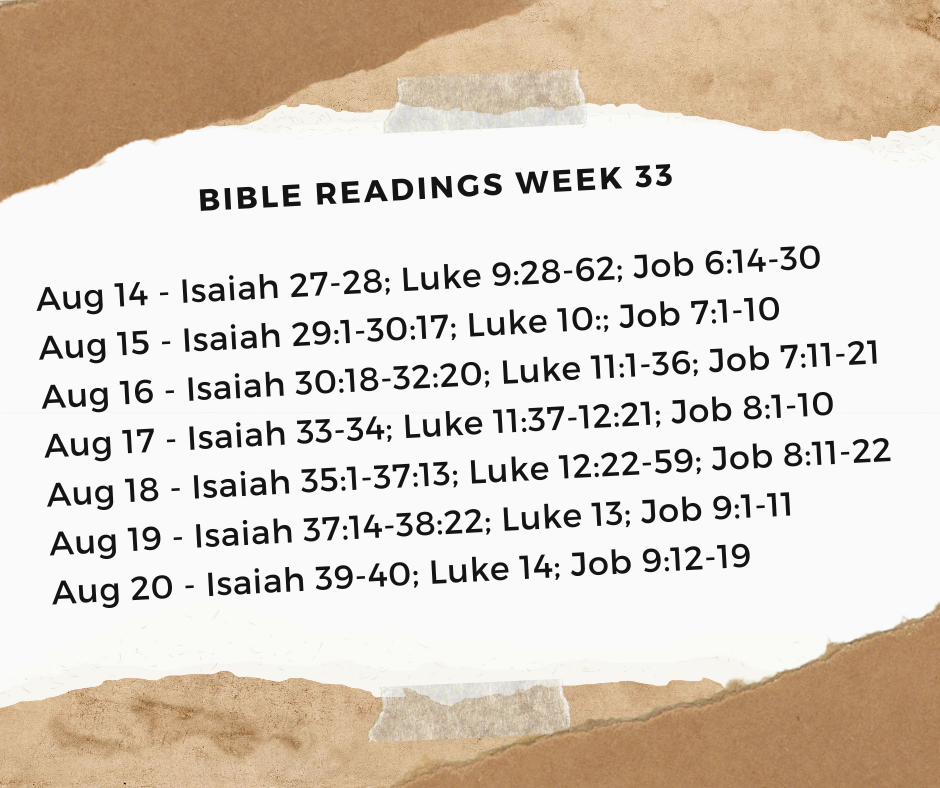 BIBLE READINGS WEEK 33
Aug 14 - Isaiah 27-28; Luke 9:28-62; Job 6:14-30
Aug 15 - Isaiah 29:1-30:17; Luke 10:; Job 7:1-10
Aug 16 - Isaiah 30:18-32:20; Luke 11:1-36; Job 7:11-21
Aug 17 - Isaiah 33-34; Luke 11:37-12:21; Job 8:1-10
Aug 18 - Isaiah 35:1-37:13; Luke 12:22-59; Job 8:11-22
Aug 19 - Isaiah 37:14-38:22; Luke 13; Job 9:1-11
Aug 20 - Isaiah 39-40; Luke 14; Job 9:12-19